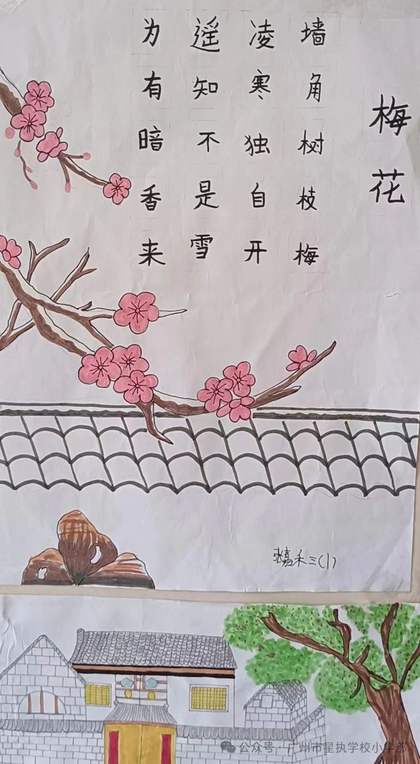 梅花
墙角树枝梅
凌寒独自开
遥知不是雪
为有暗香来
禾三(1)
公众号·广州市星执学校小学部